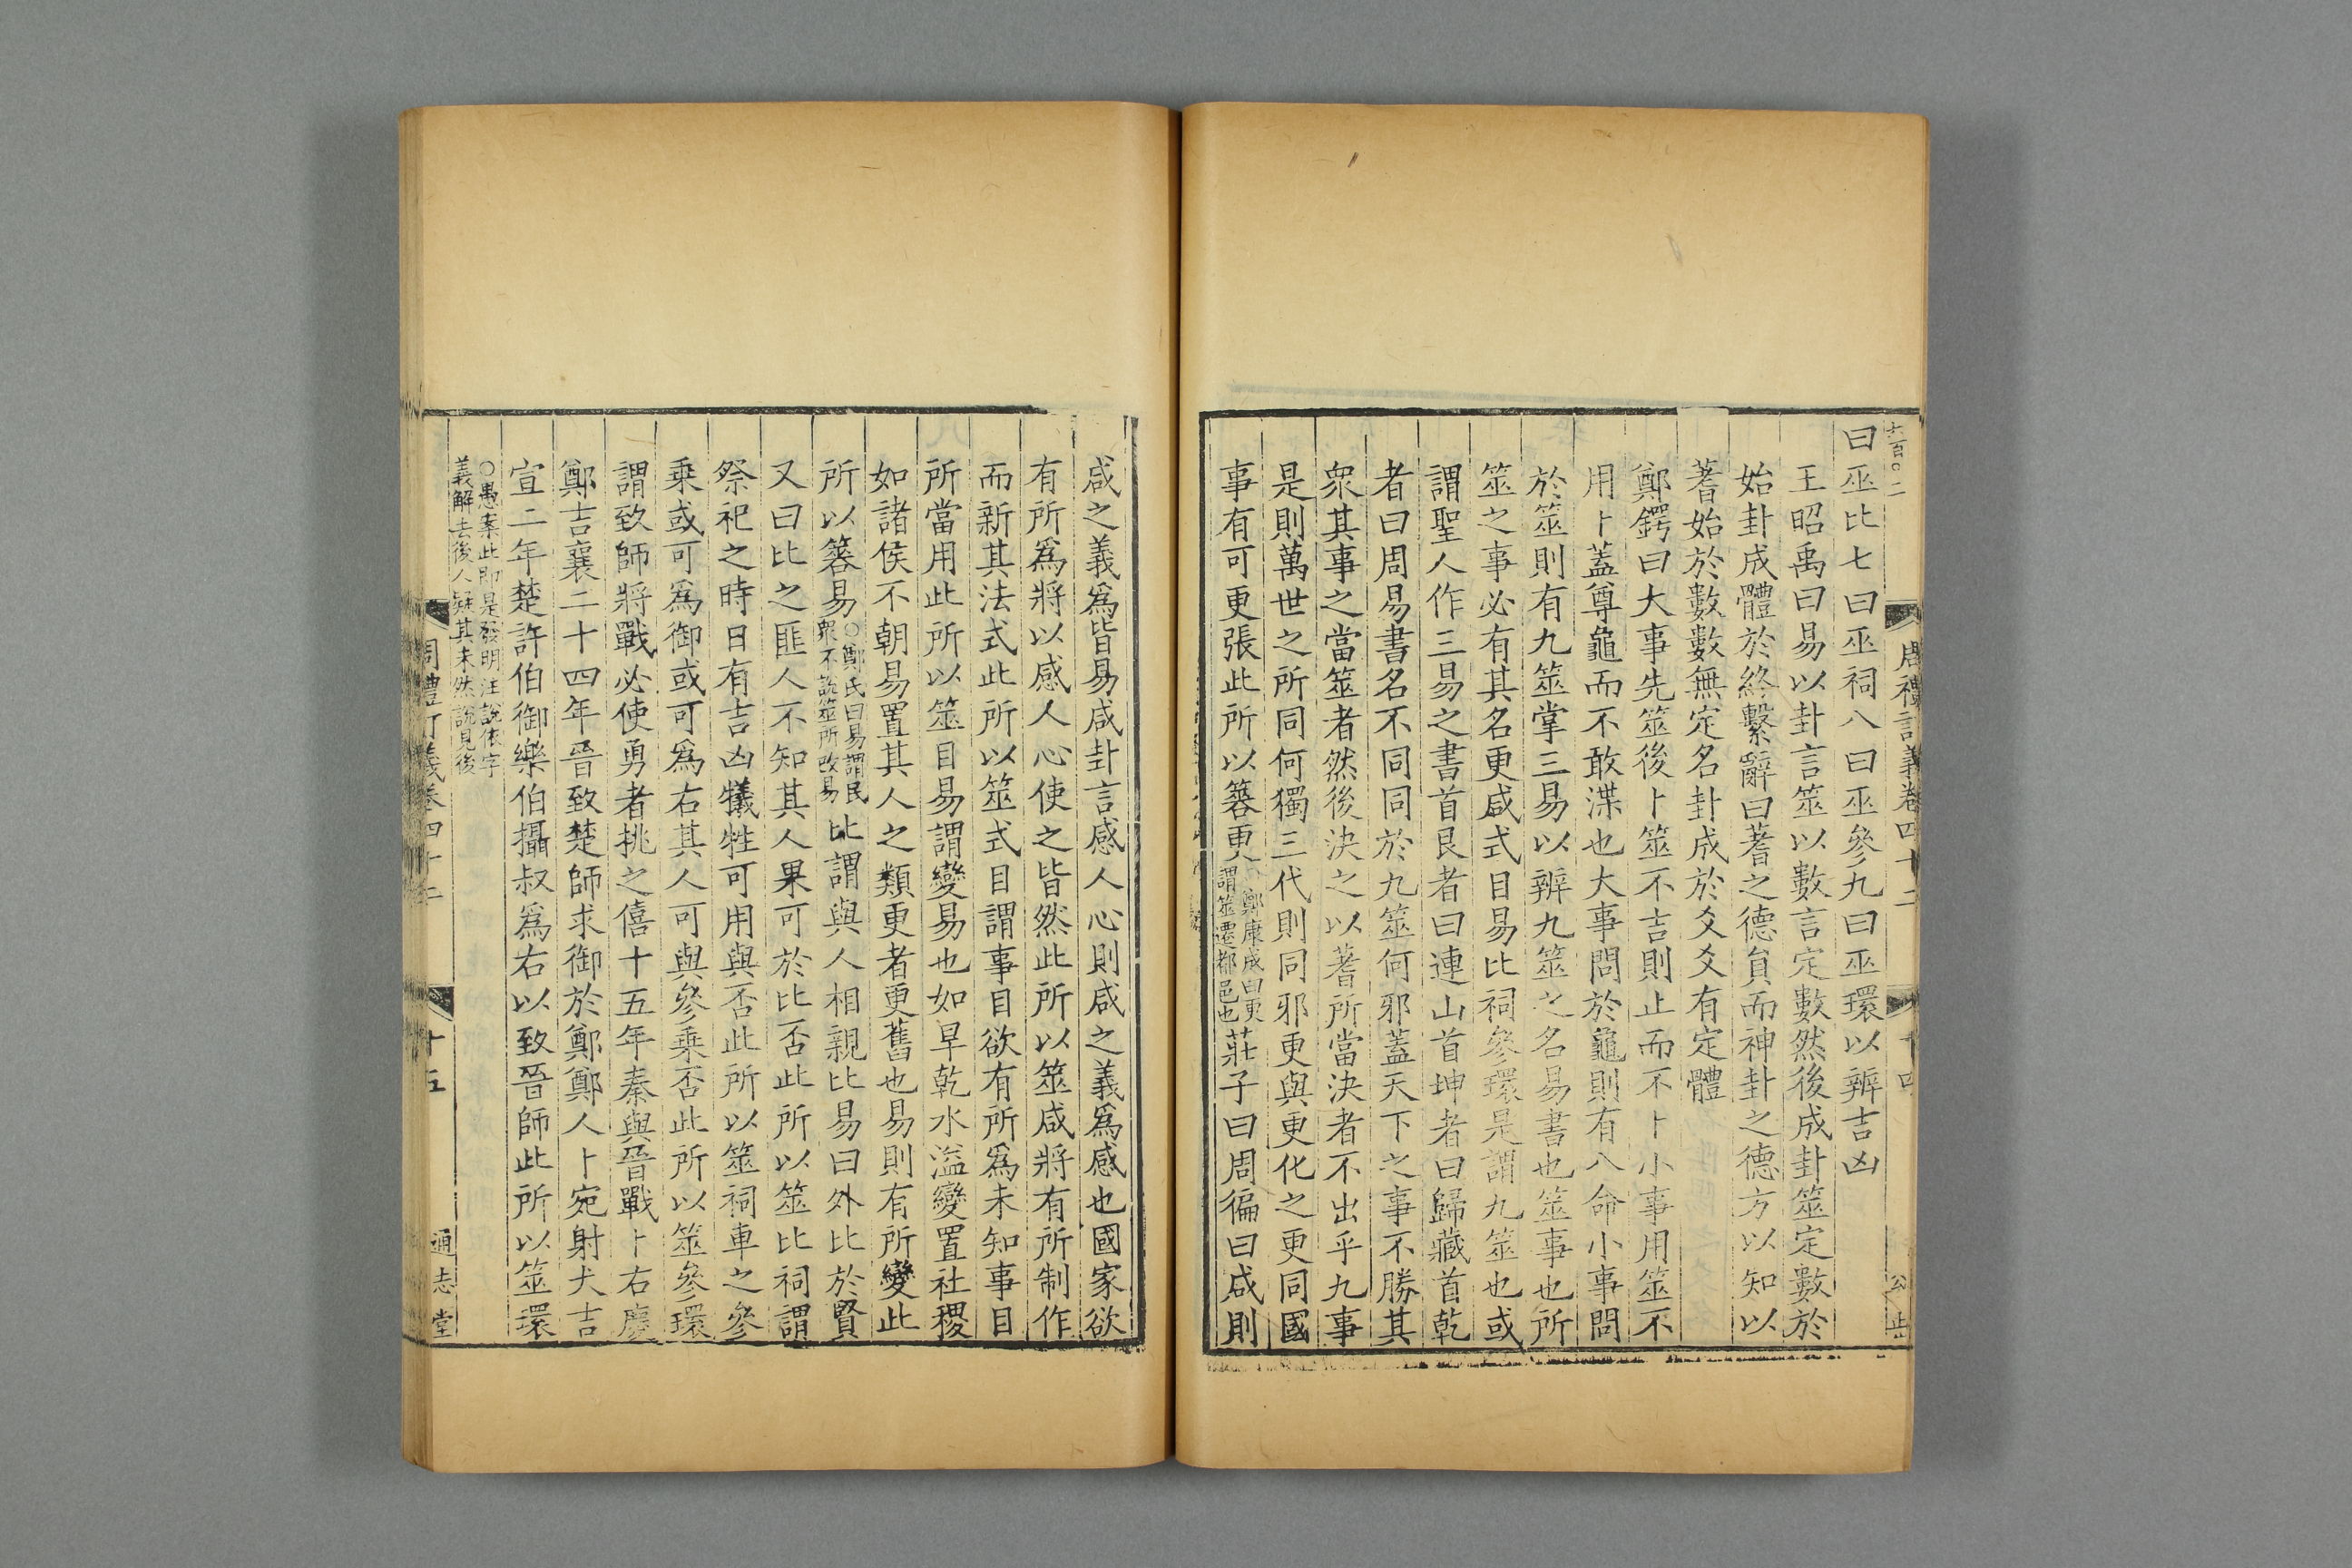 六百〇二
周禮訂義卷四十二
十四
公止
曰巫比七曰巫祠八曰巫參九曰巫環以辨吉凶
王昭禹曰易以卦言筮以數言定數然後成卦筮定數於
始卦成體於終繫辭曰蓍之德貟而神卦之德方以知以
蓍始於數數無定名卦成於爻爻有定體
鄭鍔曰大事先筮後卜筮不吉則止而不卜小事用筮不
用卜蓋尊龜而不敢渫也大事問於龜則有八命小事問
於筮則有九筮掌三易以辨九筮之名易書也筮事也所
筮之事必有其名更咸式目易比祠參環是謂九筮也或
謂聖人作三易之書首艮者曰連山首坤者曰歸藏首乾
者曰周易書名不同同於九筮何邪蓋天下之事不勝其
衆其事之當筮者然後決之以蓍所當決者不出乎九事
是則萬世之所同何獨三代則同邪更與更化之更同國
事有可更張此所以簭更鄭康成曰更謂筮遷都邑也莊子曰周徧曰咸則
咸之義爲皆易咸卦言感人心則咸之義爲感也國家欲
有所爲將以感人心使之皆然此所以筮咸將有所制作
而新其法式此所以筮式目謂事目欲有所爲未知事目
所當用此所以筮目易謂變易也如旱乾水溢變置社稷
如諸侯不朝易置其人之類更者更舊也易則有所變此
所以簭易○鄭氏曰易謂民衆不說筮所改易比謂與人相親比易曰外比於賢
又曰比之匪人不知其人果可於比否此所以筮比祠謂
祭祀之時日有吉凶犧牲可用與否此所以筮祠車之參
乗或可爲御或可爲右其人可與參乗否此所以筮參環
謂致師將戰必使勇者挑之僖十五年秦與晉戰卜右慶
鄭吉襄二十四年晉致楚師求御於鄭鄭人卜宛射犬吉
宣二年楚許伯御樂伯攝叔爲右以致晉師此所以筮環
○愚案此即是發明注說依字
義解去後人疑其未然說見後
周禮訂義卷四十二
十五
通志堂